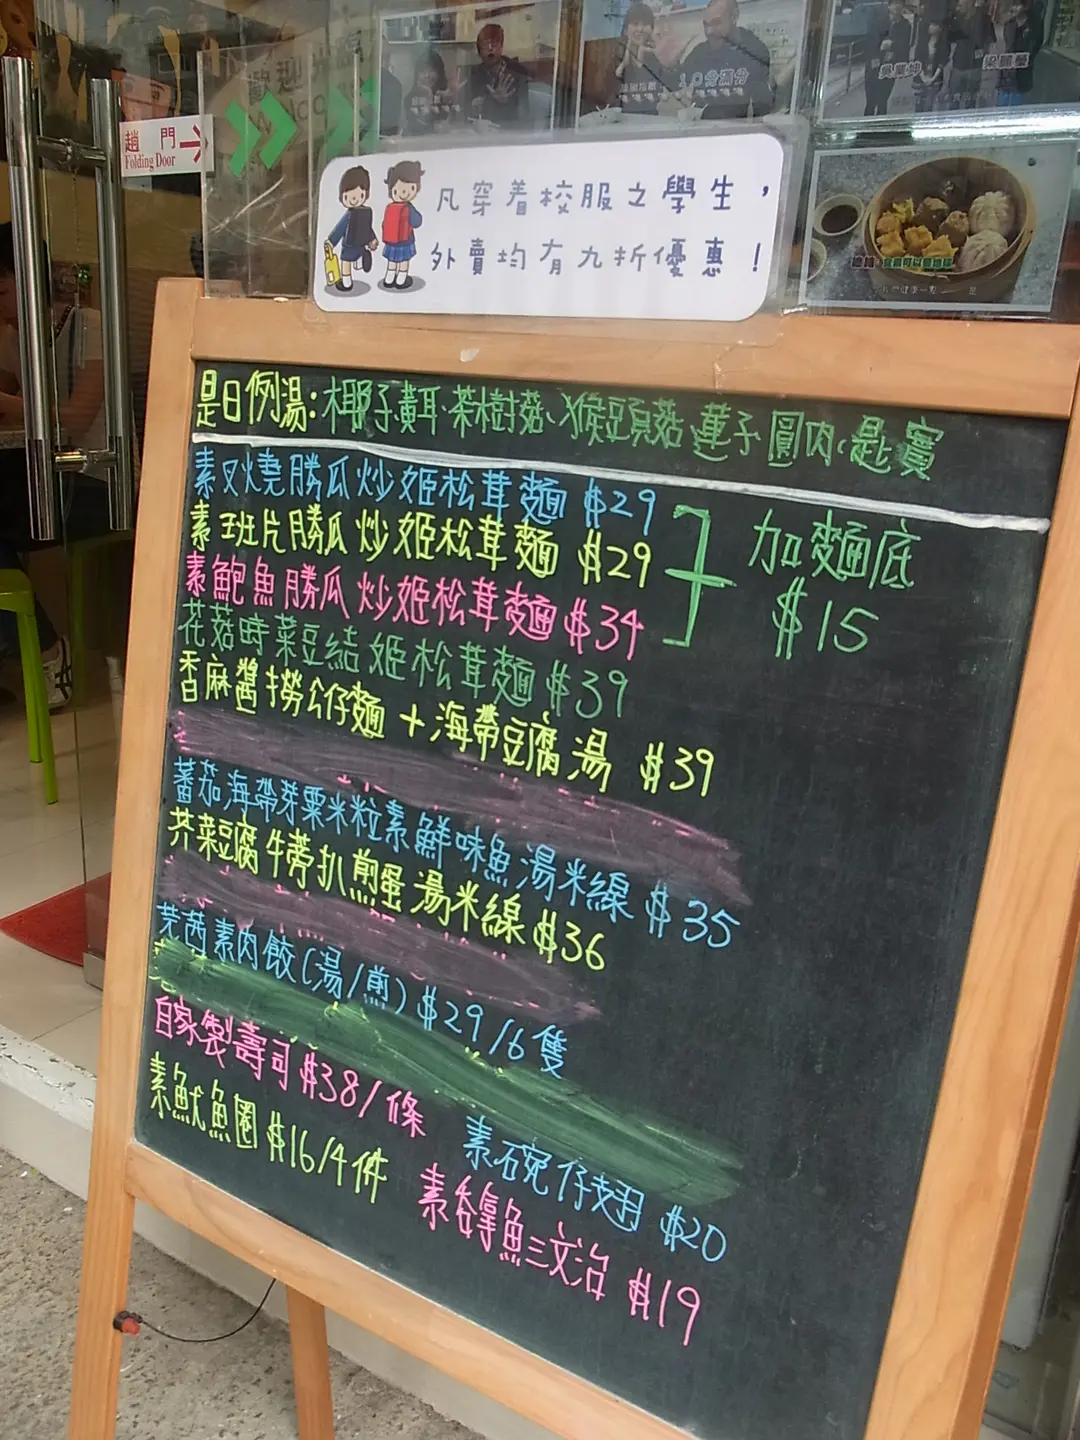 趟門
Folding Door
10分滿分
凡穿着校服之學生，
外賣均有九折優惠！
是日例湯：椰子黃耳、茶樹菇、猴豆頭菇、蓮子、圓肉、匙實
素叉燒勝瓜炒姬松茸麵 $29
素班片勝瓜炒姬松茸麵 $29
素鮑魚勝瓜炒姬松茸麵 $34
加麵底
$15
花菇時菜豆結姬松茸麵 $39
香麻醬撈公仔麵 + 海帶豆腐湯 $39
蕃茄海帶芽粟米粒素鮮味魚湯米線 $35
芥菜豆腐牛蒡扒煎蛋湯米線 $36
芫茜素肉餃(湯/煎) $29/6隻
自家製壽司 $38/條
素魷魚圈 $16/4件
素碗仔翅 $20
素吞拿魚三文治 $19